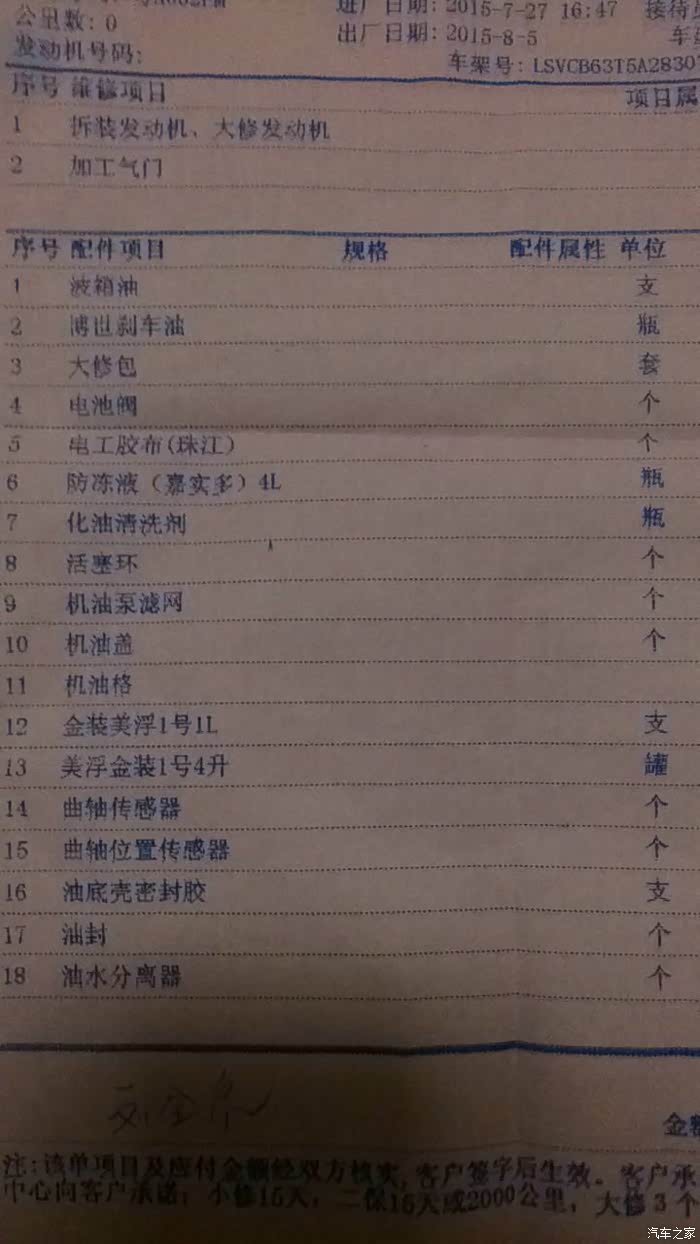 进厂日期: 2015-7-27 16:47 接待
公里数: 0
出厂日期: 2015-8-5 车架
发动机号码:
车架号: LSVCB63T5A28307
序号 维修项目 项目属
1 拆装发动机、大修发动机
2 加工气门
序号 配件项目 规格 配件属性 单位
1 波箱油 支
2 博世刹车油 瓶
3 大修包 套
4 电池阀 个
5 电工胶布(珠江) 个
6 防冻液（嘉实多）4L 瓶
7 化油清洗剂 瓶
8 活塞环 个
9 机油泵滤网 个
10 机油盖 个
11 机油格
12 金装美浮1号1L 支
13 美浮金装1号4升 罐
14 曲轴传感器 个
15 曲轴位置传感器 个
16 油底壳密封胶 支
17 油封 个
18 油水分离器 个
金额
注:该单项目及应付金额经双方核实,客户签字后生效。客户承
中心向客户承诺: 小修15天, 二保15天或2000公里, 大修3个
汽车之家